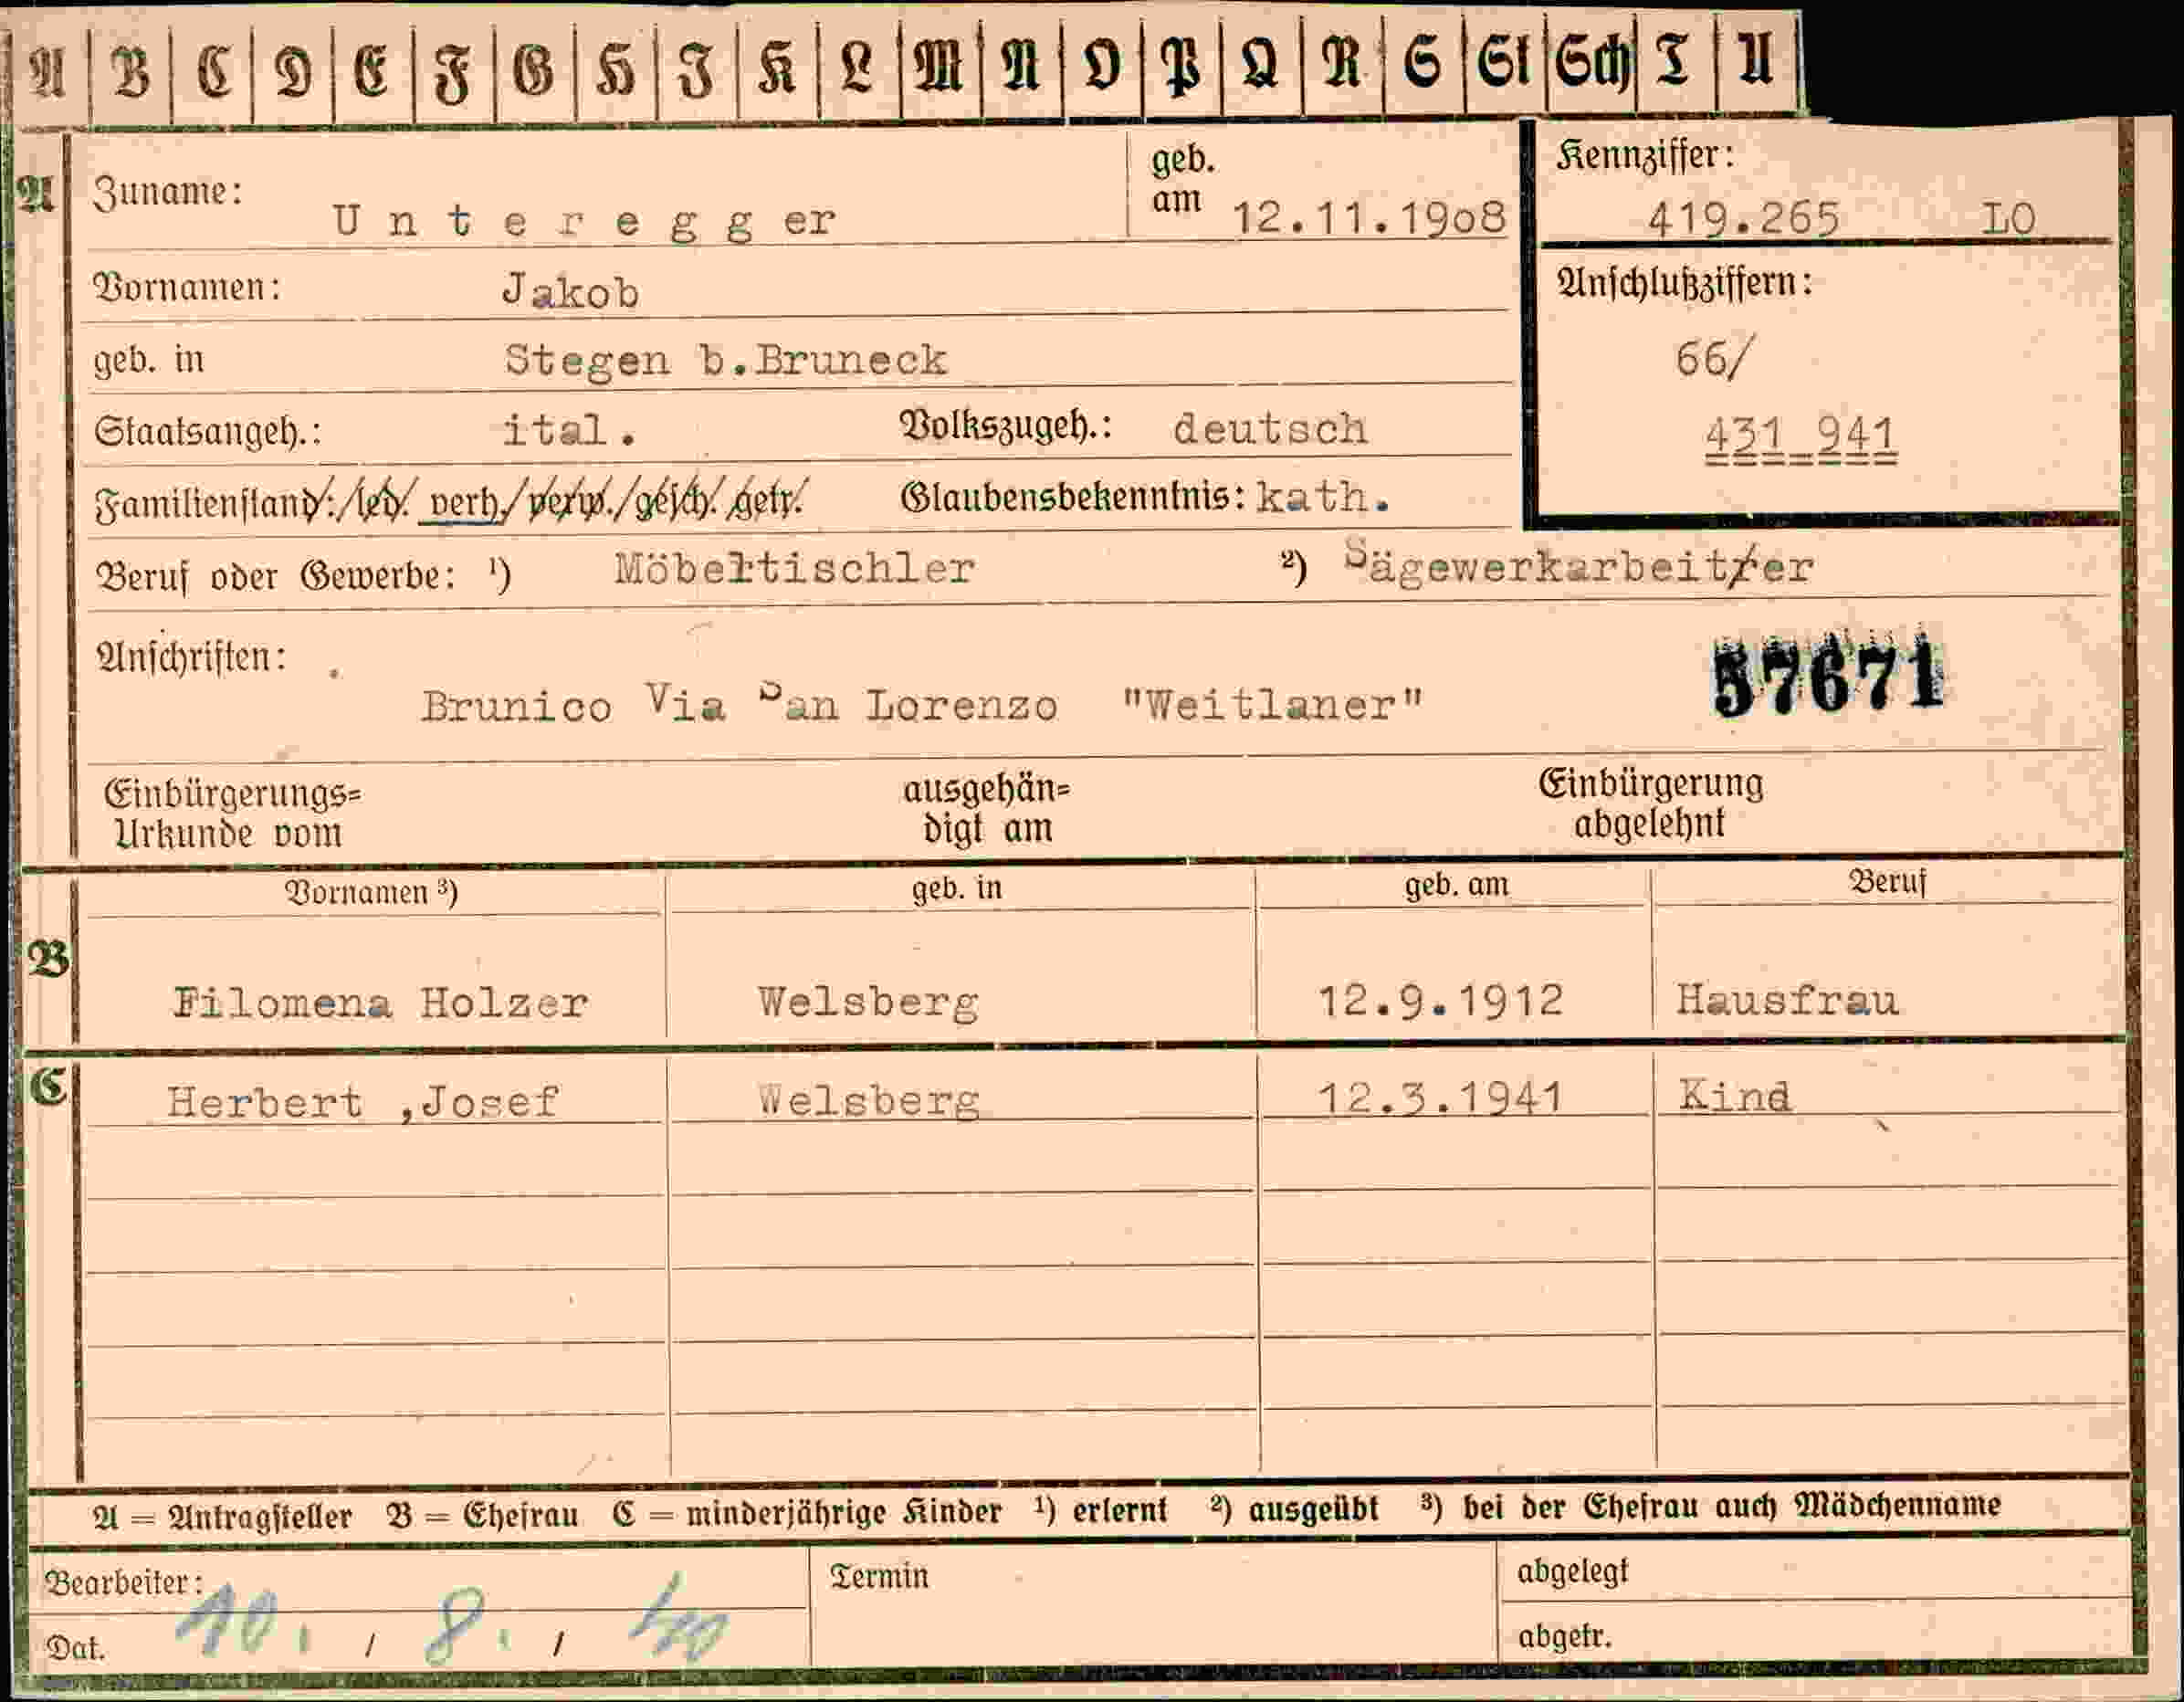 A B C D E F G H I K L M N O P Q R S St Sch T U
A Zuname: Unteregger geb. am 12.11.19o8 Kennziffer: 419.265 LO
Vornamen: Jakob Anschlußziffern:
geb. in Stegen b.Bruneck 66/
Staatsangeh.: ital. Volkszugeh.: deutsch 431 941
Familienstand: led. verh. verw. gesch. getr. Glaubensbekenntnis: kath.
Beruf oder Gewerbe: ¹) Möbeltischler ²) Sägewerkarbeiter
Anschriften: 57671
Brunico Via San Lorenzo "Weitlaner"
Einbürgerungs= ausgehän= Einbürgerung
Urkunde vom digt am abgelehnt
Vornamen ³) geb. in geb. am Beruf
B Filomena Holzer Welsberg 12.9.1912 Hausfrau
C Herbert ,Josef Welsberg 12.3.1941 Kind
A = Antragsteller B = Ehefrau C = minderjährige Kinder ¹) erlernt ²) ausgeübt ³) bei der Ehefrau auch Mädchenname
Bearbeiter: Termin abgelegt
Dat. 10. / 8. / 40 abgetr.